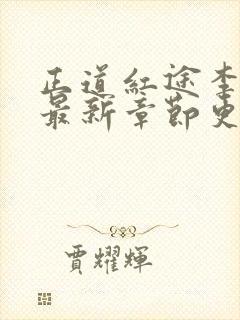 正道紅途李
最新章節更
賈耀輝